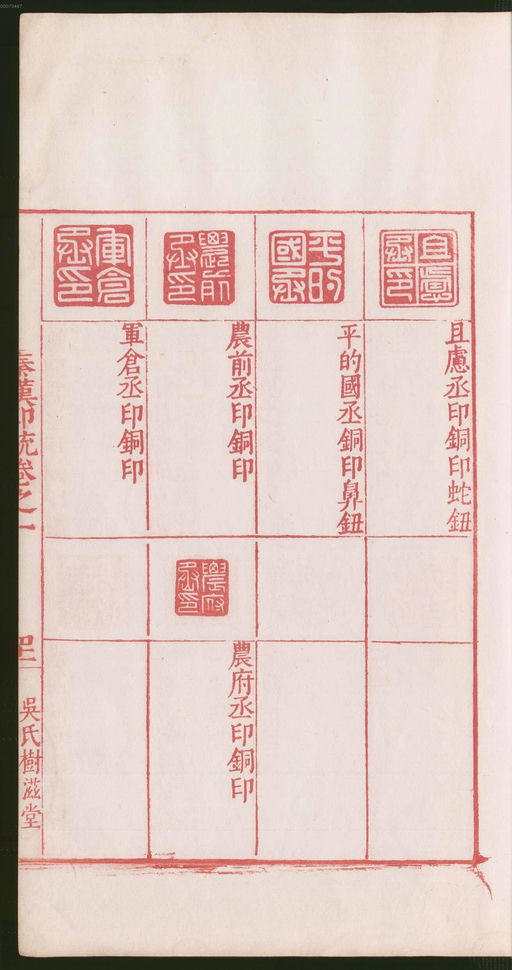 且慮丞印
且慮丞印銅印蛇鈕
平的國丞
平的國丞銅印鼻鈕
農前丞印
農前丞印銅印
農府丞印
農府丞印銅印
軍倉丞印
軍倉丞印銅印
秦漢印統卷之一
吳氏樹滋堂
00079447